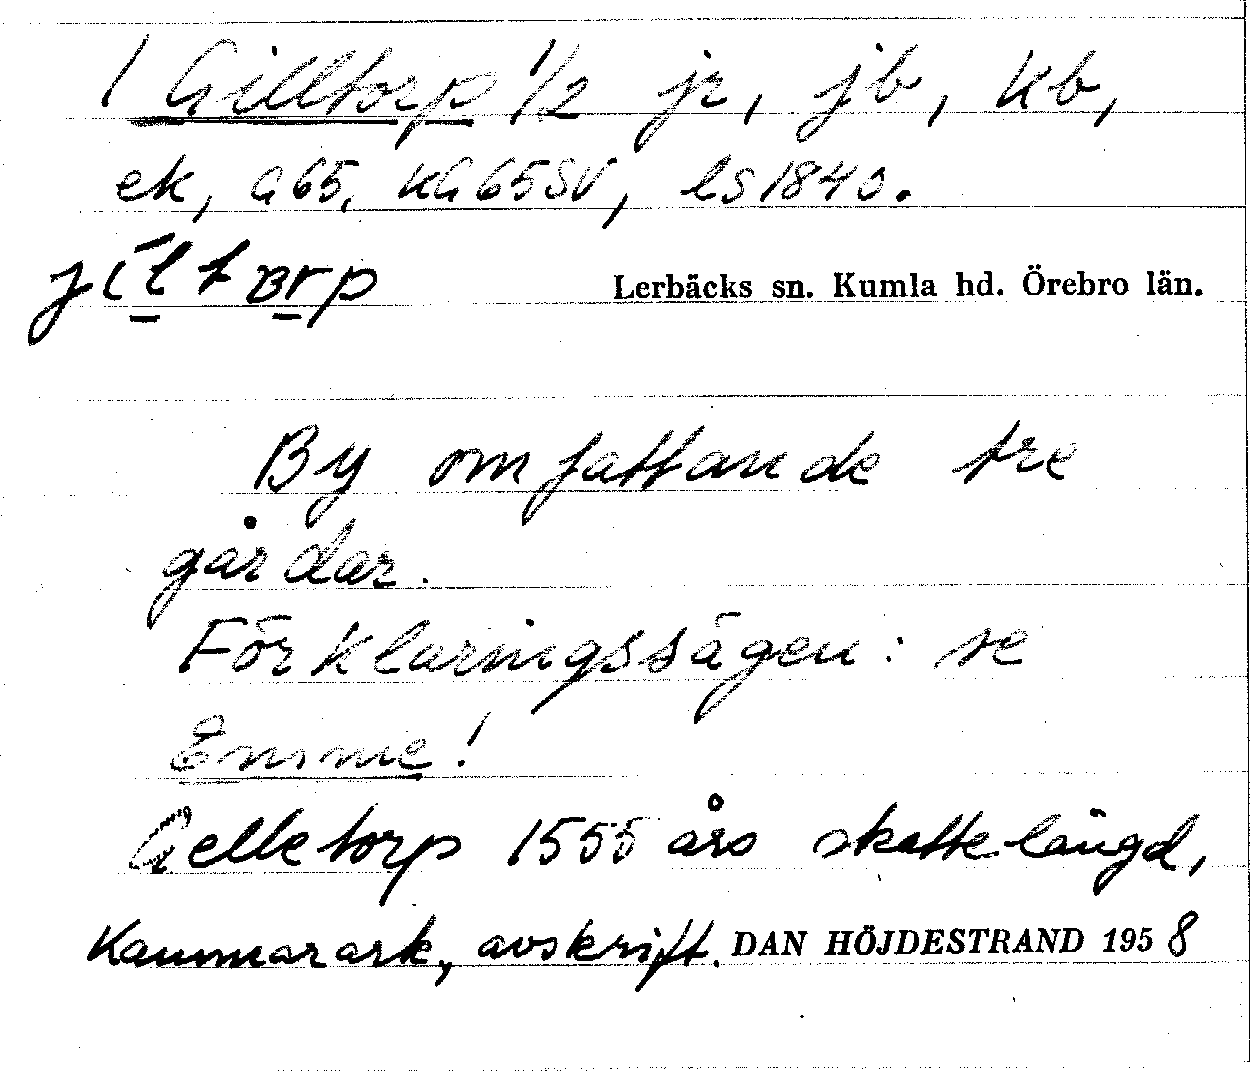 1 Gilltorp 1/2 jr, jb, kb,
ek, G65, KG65SV, ls 1840.
jíltɔrp
Lerbäcks sn. Kumla hd. Örebro län.
By omfattande tre
gårdar.
Förklaringssägen: se
Emme!
Gelletorp 1555 års skattelängd,
Kammarark, avskrift.
DAN HÖJDESTRAND 1958